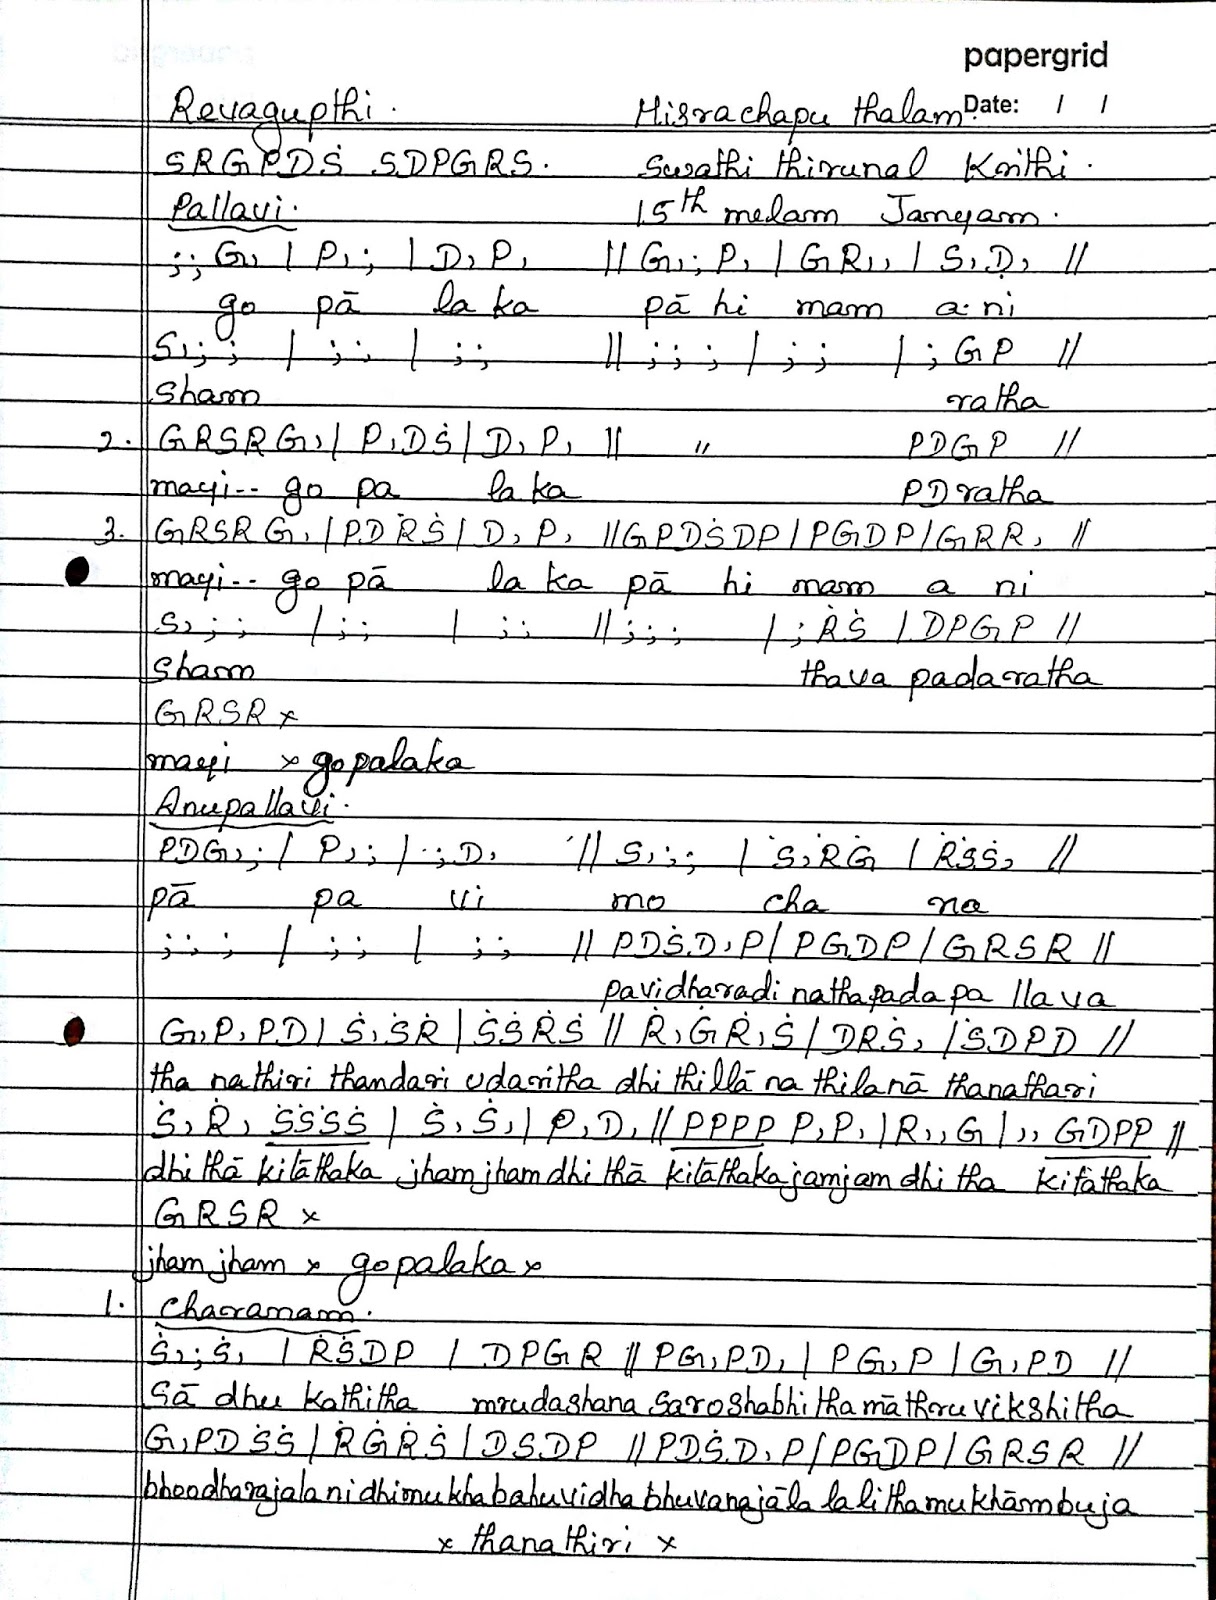 papergrid
Revagupthi. Misrachapu thalam Date: / /
SRGPDṠ SDPGRS. Swathi thirunal Krithi.
Pallavi. 15th melam Janyam.
;; G, | P,; | D, P, || G,; P, | GR,, | S, Ḍ, ||
go pā la ka pā hi mam a ni
S,;; | ;; | ;; || ;;; | ;; | ; GP ||
Sham ratha
2. GRSRG, | P, DṠ | D, P, || " PDGP ||
mayi-- go pa la ka PD ratha
3. GRSRG, | PDṘṠ | D, P, || GPDṠDP | PGDP | GRR, ||
mayi-- go pā la ka pā hi mam a ni
S,;; | ;; | ;; || ;;; | ; ṘṠ | DPGP ||
Sham thava padaratha
GRSR x
mayi x gopalaka
Anupallavi.
PDG,; | P,; | ; D, || S,;; | Ṡ, ṘĠ | ṘṠṠ, ||
pā pa vi mo cha na
;;; | ;; | ;; || PDṠD, P | PGDP | GRSR ||
pavidharadi nathapada pa llava
G, P, PD | Ṡ, ṠṘ | ṠṠṘṠ || Ṙ, ĠṘ, Ṡ | DRṠ, | ṠDPD ||
tha nathiri thandari udaritha dhi thillā na thilanā thanathari
Ṡ, Ṙ, ṠṠṠṠ | Ṡ, Ṡ, | P, D, || PPPP P, P, | R,, G | ,, GDPP ||
dhi thā kitāthaka jham jham dhi thā kitāthaka jamjam dhi tha kitāthaka
GRSR x
jham jham x gopalaka x
1. Charanam.
Ṡ,; Ṡ, | ṘṠDP | DPGR || PG, PD, | PG, P | G, PD ||
Sā dhu kathitha mrudashana saroshabhi tha māthru vikshitha
G, PDṠṠ | ṘĠṘṠ | DSDP || PDṠD, P | PGDP | GRSR ||
bhoodharajalanidhimukhabahuvidha bhuvanajāla lalithamukhāmbuja
x thanathiri x